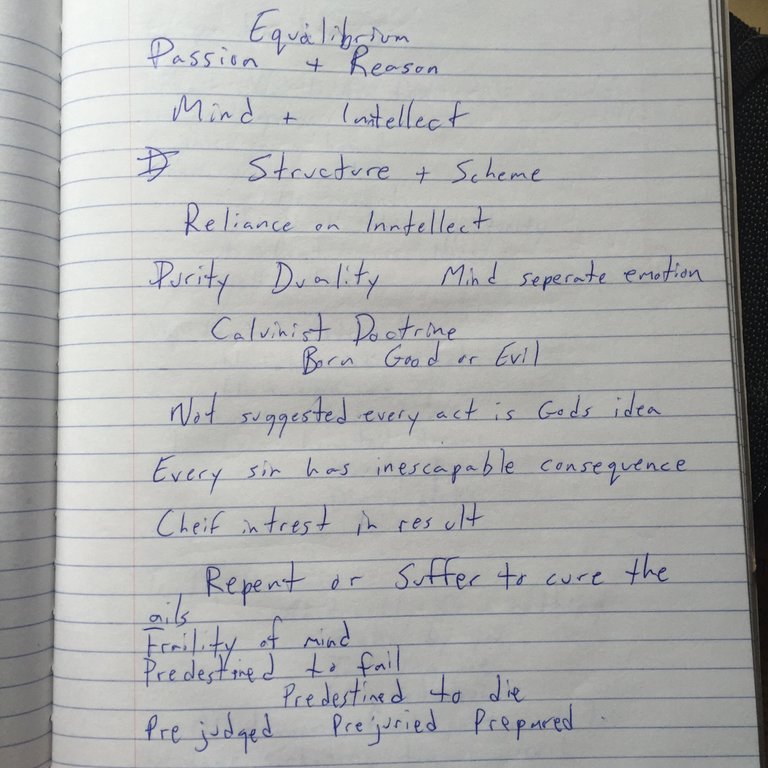 Equalibrium
Passion + Reason
Mind + Inntellect
D Structure + Scheme
Reliance on Inntellect
Purity Duality Mind seperate emotion
Calvinist Doctrine
Born Good or Evil
Not suggested every act is Gods idea
Every sin has inescapable consequence
Cheif intrest in result
Repent or Suffer to cure the
ails
Fraility of mind
Predestined to fail
Predestined to die
Pre judged Prejuried Prepared